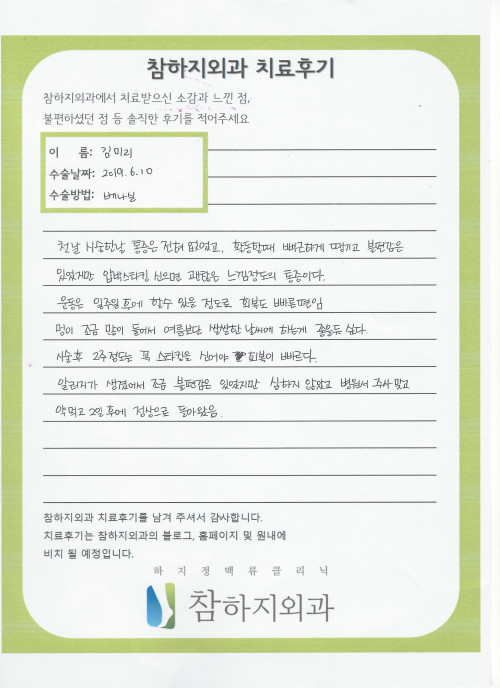 참하지외과 치료후기
참하지외과에서 치료받으신 소감과 느낀 점,
불편하셨던 점 등 솔직한 후기를 적어주세요
이 름: 김미리
수술날짜: 2019. 6. 10
수술방법: 베나실
첫날 시술한날 통증은 전혀 없었고, 활동할때 뻐근하게 땡기고 불편감은
있었지만 압박스타킹 신으면 괜찮은 느낌정도의 통증이다.
운동은 일주일 후에 할수 있을 정도로 회복도 빠른편임
멍이 조금 많이 들어서 여름보단 쌀쌀한 날씨에 하는게 좋을듯 싶다.
시술후 2주정도는 꼭 스타킹은 신어야 회복이 빠르다.
알러지가 생겼어서 조금 불편감은 있었지만 심하지 않았고 병원서 주사맞고
약먹고 2일후에 정상으로 돌아왔음.
참하지외과 치료후기를 남겨 주셔서 감사합니다.
치료후기는 참하지외과의 블로그, 홈페이지 및 원내에
비치 될 예정입니다.
하지정맥류클리닉
참하지외과